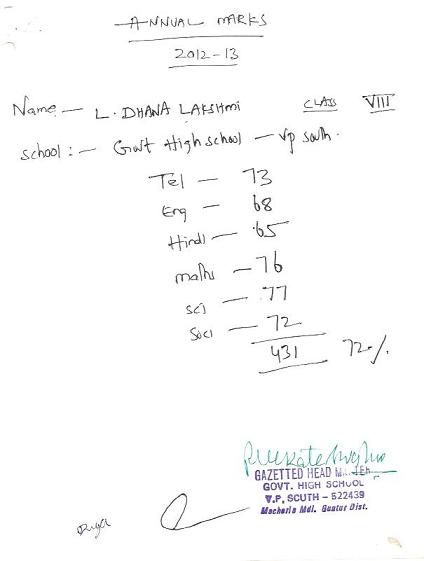 ANNUAL MARKS
2012-13
Name — L. DHANA LAKSHMI CLASS VIII
School :— Govt High school — Vp South.
Tel — 73
Eng — 68
Hindi — 65
maths — 76
sci — 77
Soci — 72
431 72%
GAZETTED HEAD MASTER
GOVT. HIGH SCHOOL
V.P. SOUTH - 522439
Macherla Mdl. Guntur Dist.